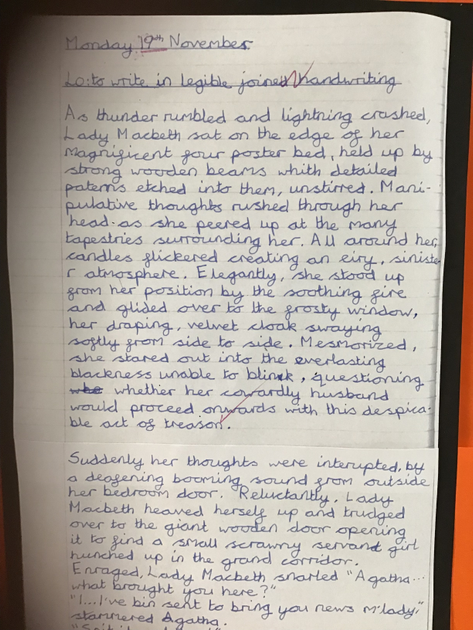 Monday 19th November
Lo: to write in legible joined handwriting
As thunder rumbled and lightning crashed,
Lady Macbeth sat on the edge of her
magnificent four poster bed, held up by
strong wooden beams whith detailed
paterns etched into them, unstirred. Mani-
pulative thoughts rushed through her
head as she peered up at the many
tapestries surrounding her. All around her,
candles flickered creating an eiry, siniste
r atmosphere. Elegantly, she stood up
from her position by the soothing fire
and glided over to the frosty window,
her draping, velvet cloak swaying
softly from side to side. Mesmorized,
she stared out into the everlasting
blackness unable to blink, questioning
whether her cowardly husband
would proceed onwards with this despica-
ble act of treason.
Suddenly her thoughts were interupted, by
a deafening booming sound from outside
her bedroom door. Reluctantly, Lady
Macbeth heaved herself up and trudged
over to the giant wooden door opening
it to find a small scrawny servant girl
hunched up in the grand corridor.
Enraged, Lady Macbeth snarled "Agatha...
what brought you here?"
"I...I've bin sent to bring you news m'lady"
stammered Agatha.